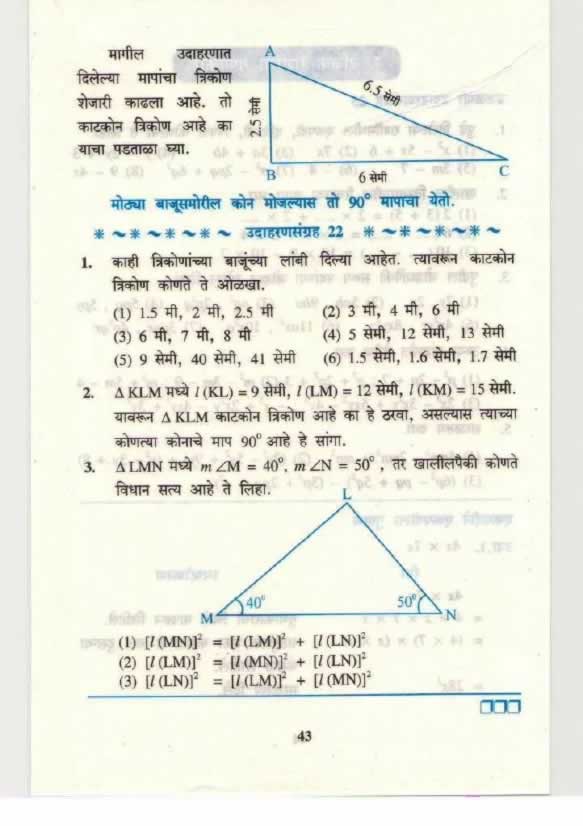 मागील उदाहरणात
दिलेल्या मापांचा त्रिकोण
शेजारी काढला आहे. तो
काटकोन त्रिकोण आहे का
याचा पडताळा घ्या.
A
2.5 सेमी
6.5 सेमी
B
6 सेमी
C
मोठ्या बाजूसमोरील कोन मोजल्यास तो 90° मापाचा येतो.
उदाहरणसंग्रह 22
1. काही त्रिकोणांच्या बाजूंच्या लांबी दिल्या आहेत. त्यावरून काटकोन
त्रिकोण कोणते ते ओळखा.
(1) 1.5 मी, 2 मी, 2.5 मी (2) 3 मी, 4 मी, 6 मी
(3) 6 मी, 7 मी, 8 मी (4) 5 सेमी, 12 सेमी, 13 सेमी
(5) 9 सेमी, 40 सेमी, 41 सेमी (6) 1.5 सेमी, 1.6 सेमी, 1.7 सेमी
2. Δ KLM मध्ये l (KL) = 9 सेमी, l (LM) = 12 सेमी, l (KM) = 15 सेमी.
यावरून Δ KLM काटकोन त्रिकोण आहे का हे ठरवा, असल्यास त्याच्या
कोणत्या कोनाचे माप 90° आहे हे सांगा.
3. Δ LMN मध्ये m ∠M = 40°, m ∠N = 50°, तर खालीलपैकी कोणते
विधान सत्य आहे ते लिहा.
L
40°
50°
M
N
(1) [l (MN)]² = [l (LM)]² + [l (LN)]²
(2) [l (LM)]² = [l (MN)]² + [l (LN)]²
(3) [l (LN)]² = [l (LM)]² + [l (MN)]²
43